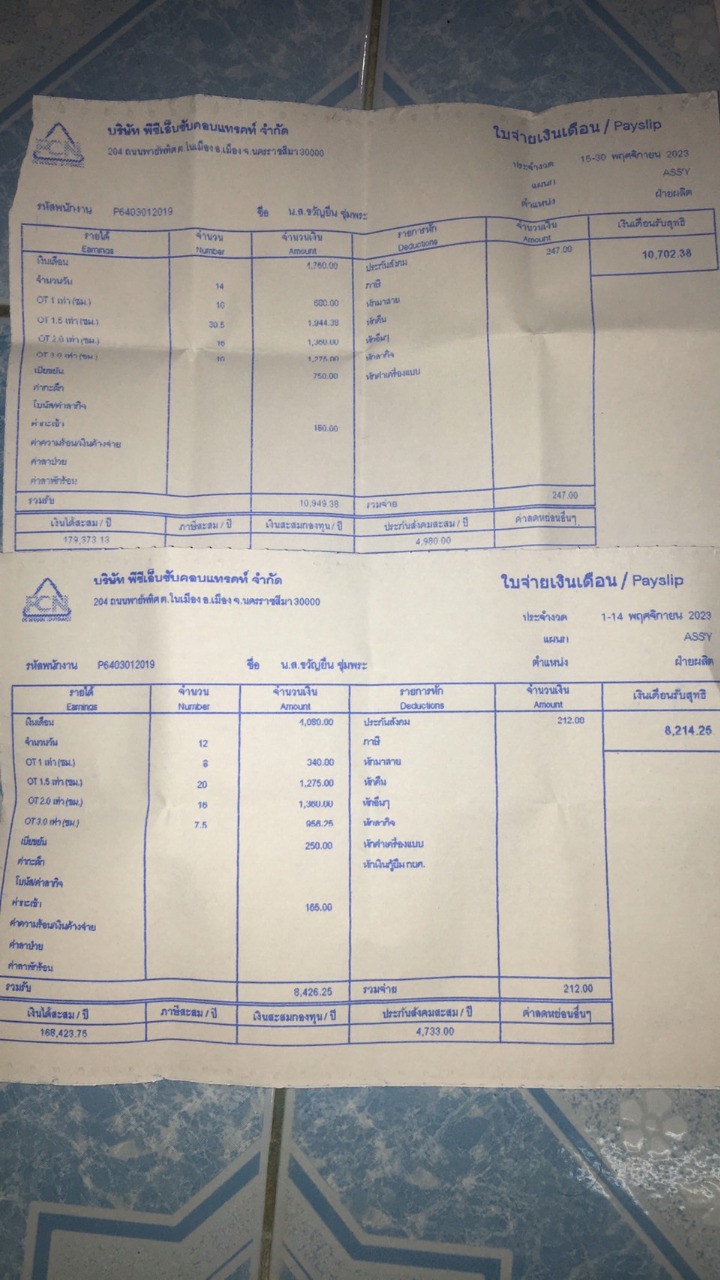 PCN
บริษัท พีซีเอ็นซับคอนแทรคท์ จำกัด
ใบจ่ายเงินเดือน / Payslip
204 ถนนพายัพทิศ ต.ในเมือง อ.เมือง จ.นครราชสีมา 30000
ประจำงวด 16-30 พฤศจิกายน 2023
แผนก ASSY
ตำแหน่ง ฝ่ายผลิต
รหัสพนักงาน P6403012019 ชื่อ น.ส.ขวัญยืน ชุ่มพระ
รายได้ จำนวน จำนวนเงิน รายการหัก จำนวนเงิน เงินเดือนรับสุทธิ
Earnings Number Amount Deductions Amount
เงินเดือน 4,760.00 ประกันสังคม 247.00 10,702.38
จำนวนวัน 14 ภาษี
OT 1 เท่า (ชม.) 10 680.00 หักมาสาย
OT 1.5 เท่า (ชม.) 30.5 1,944.38 หักคืน
OT 2.0 เท่า (ชม.) 16 1,360.00 หักอื่นๆ
OT 3.0 เท่า (ชม.) 10 1,275.00 หักลากิจ
เบี้ยขยัน 750.00 หักค่าเครื่องแบบ
ค่ากะดึก
โบนัส/ค่าลากิจ
ค่ากะเช้า 180.00
ค่าความร้อน/เงินค้างจ่าย
ค่าลาป่วย
ค่าลาพักร้อน
รวมรับ 10,949.38 รวมจ่าย 247.00
เงินได้สะสม / ปี ภาษีสะสม / ปี เงินสะสมกองทุน / ปี ประกันสังคมสะสม / ปี ค่าลดหย่อนอื่นๆ
179,373.13 4,980.00
PCN
บริษัท พีซีเอ็นซับคอนแทรคท์ จำกัด
ใบจ่ายเงินเดือน / Payslip
204 ถนนพายัพทิศ ต.ในเมือง อ.เมือง จ.นครราชสีมา 30000
ประจำงวด 1-14 พฤศจิกายน 2023
แผนก ASSY
ตำแหน่ง ฝ่ายผลิต
รหัสพนักงาน P6403012019 ชื่อ น.ส.ขวัญยืน ชุ่มพระ
รายได้ จำนวน จำนวนเงิน รายการหัก จำนวนเงิน เงินเดือนรับสุทธิ
Earnings Number Amount Deductions Amount
เงินเดือน 4,080.00 ประกันสังคม 212.00 8,214.25
จำนวนวัน 12 ภาษี
OT 1 เท่า (ชม.) 8 340.00 หักมาสาย
OT 1.5 เท่า (ชม.) 20 1,275.00 หักคืน
OT 2.0 เท่า (ชม.) 16 1,360.00 หักอื่นๆ
OT 3.0 เท่า (ชม.) 7.5 956.25 หักลากิจ
เบี้ยขยัน 250.00 หักค่าเครื่องแบบ
ค่ากะดึก หักเงินกู้ยืม กยศ.
โบนัส/ค่าลากิจ
ค่ากะเช้า 165.00
ค่าความร้อน/เงินค้างจ่าย
ค่าลาป่วย
ค่าลาพักร้อน
รวมรับ 8,426.25 รวมจ่าย 212.00
เงินได้สะสม / ปี ภาษีสะสม / ปี เงินสะสมกองทุน / ปี ประกันสังคมสะสม / ปี ค่าลดหย่อนอื่นๆ
168,423.75 4,733.00